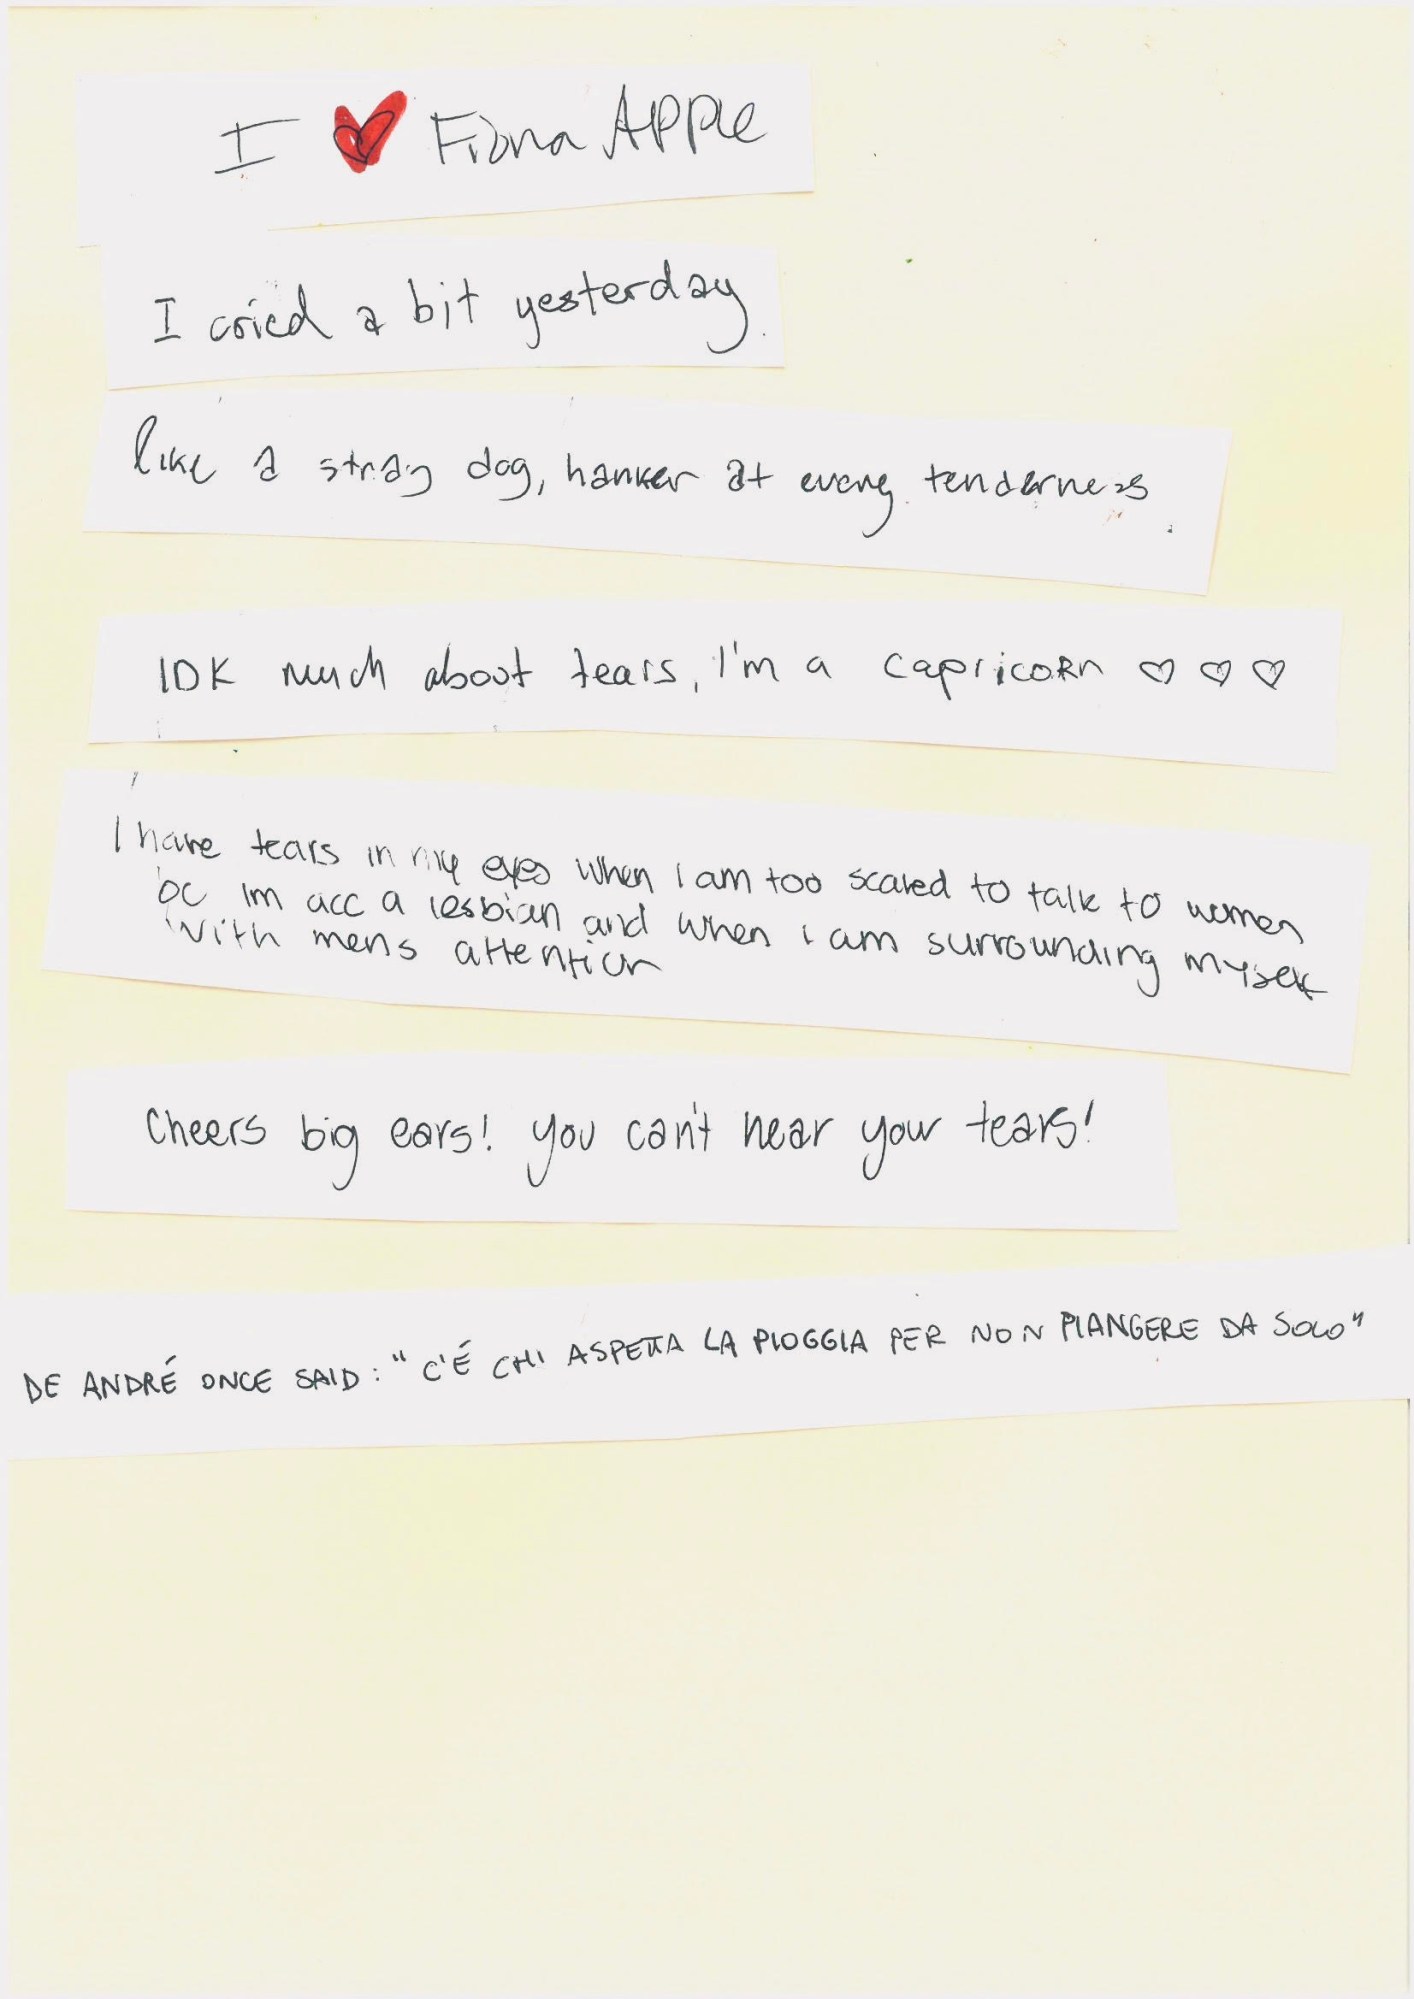 I ♥ Fiona Apple
I cried a bit yesterday.
like a stray dog, hanker at every tenderness.
IDK much about tears, I'm a capricorn ♡ ♡ ♡
I have tears in my eyes when I am too scared to talk to women
bc Im acc a lesbian and when i am surrounding myself
with mens attention
Cheers big ears! you can't hear your tears!
DE ANDRÉ ONCE SAID: "C'É CHI ASPETTA LA PIOGGIA PER NON PIANGERE DA SOLO"